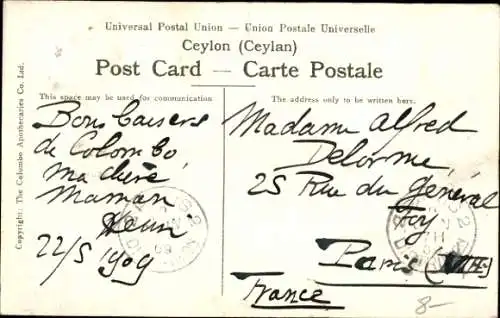 Universal Postal Union — Union Postale Universelle
Ceylon (Ceylan)
Post Card — Carte Postale
This space may be used for communication
The address only to be written here.
Copyright: The Colombo Apothecaries Co. Ltd.
Bons baisers
de Colombo
ma chère
Maman
Henri
22/5 1909
Madame Alfred
Delorme
25 Rue du Général
Foy
Paris (VIII)
France
8-